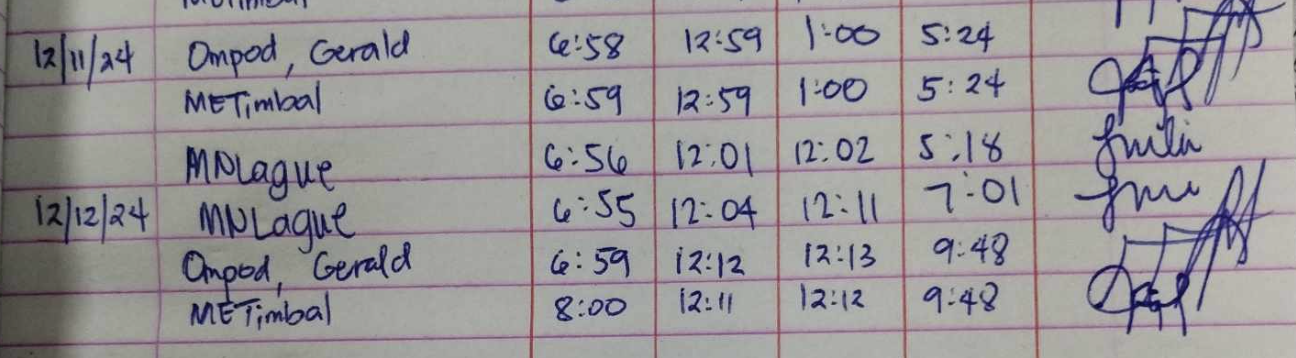 12/11/24 Ompod, Gerald 6:58 12:59 1:00 5:24
METimbal 6:59 12:59 1:00 5:24
MNLague 6:56 12:01 12:02 5:18
12/12/24 MNLague 6:55 12:04 12:11 7:01
Ompod, Gerald 6:59 12:12 12:13 9:48
METimbal 8:00 12:11 12:12 9:48